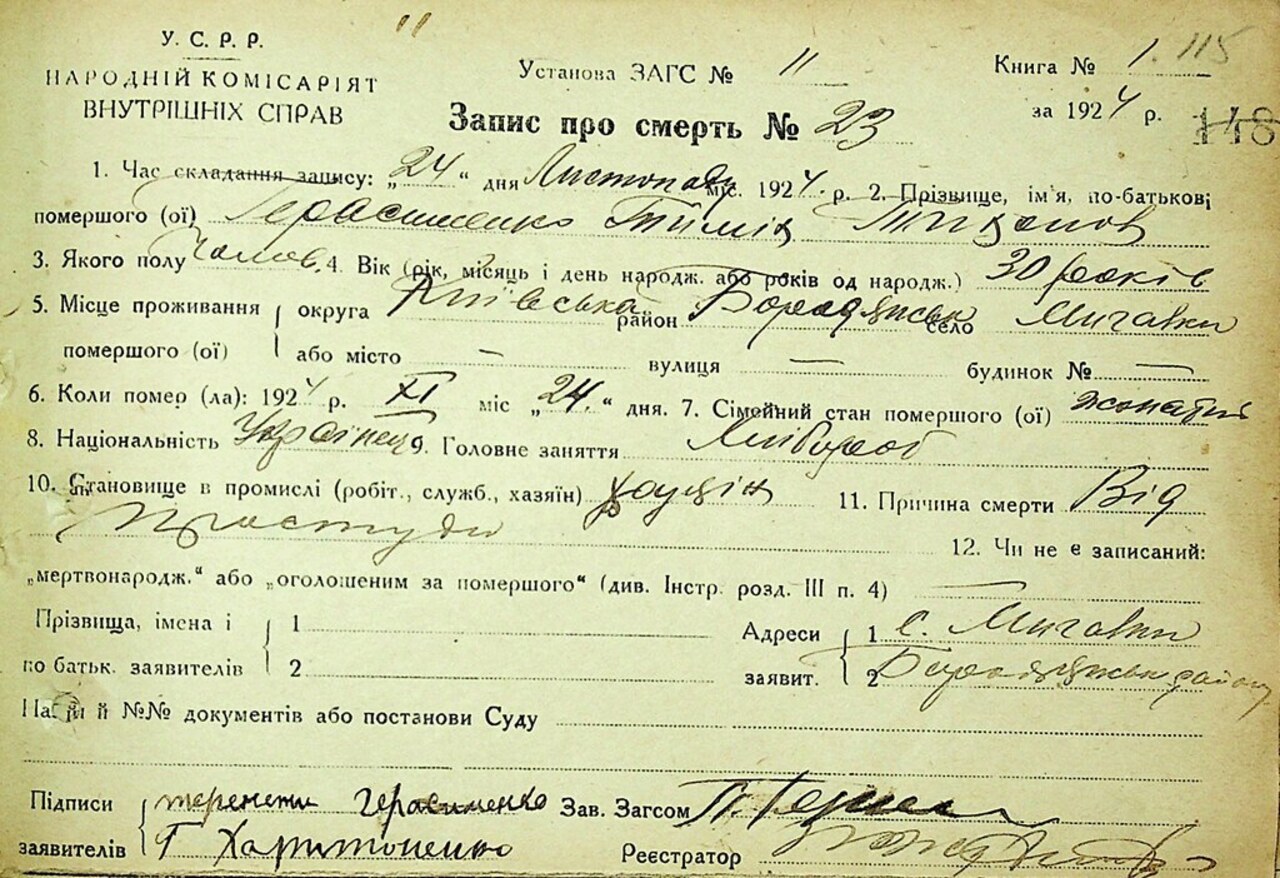 "
У. С. Р. Р.
НАРОДНІЙ КОМІСАРІЯТ
ВНУТРІШНІХ СПРАВ
Установа ЗАГС № 11
Книга № 1. 115
за 1924 р. 148
Запис про смерть № 23
1. Час складання запису: „24“ дня Листопаду міс. 1924. р. 2. Прізвище, ім'я, по-батькові
помершого (ої) Герасименко Тиміш
3. Якого полу Чолов. 4. Вік (рік, місяць і день народж. або років од народж.) 30 років
5. Місце проживання округа Київська район Бородянськ село Мигалки
помершого (ої) або місто — вулиця — будинок № —
6. Коли помер (ла): 1924 р. XI міс „24.“ дня. 7. Сімейний стан помершого (ої) жонатий
8. Національність Українець 9. Головне заняття Хлібороб
10. Становище в промислі (робіт., служб., хазяїн) хазяїн 11. Причина смерти Від
простуди
12. Чи не є записаний:
„мертвонародж.“ або „оголошеним за помершого“ (див. Інстр. розд. III п. 4) —
Прізвища, імена і 1 Адреси 1 с. Мигалки
по батьк. заявителів 2 заявит. 2 Бородянськ району
й №№ документів або постанови Суду
Підписи Терентий Герасименко Зав. Загсом
заявителів Г Харитоненко Реєстратор